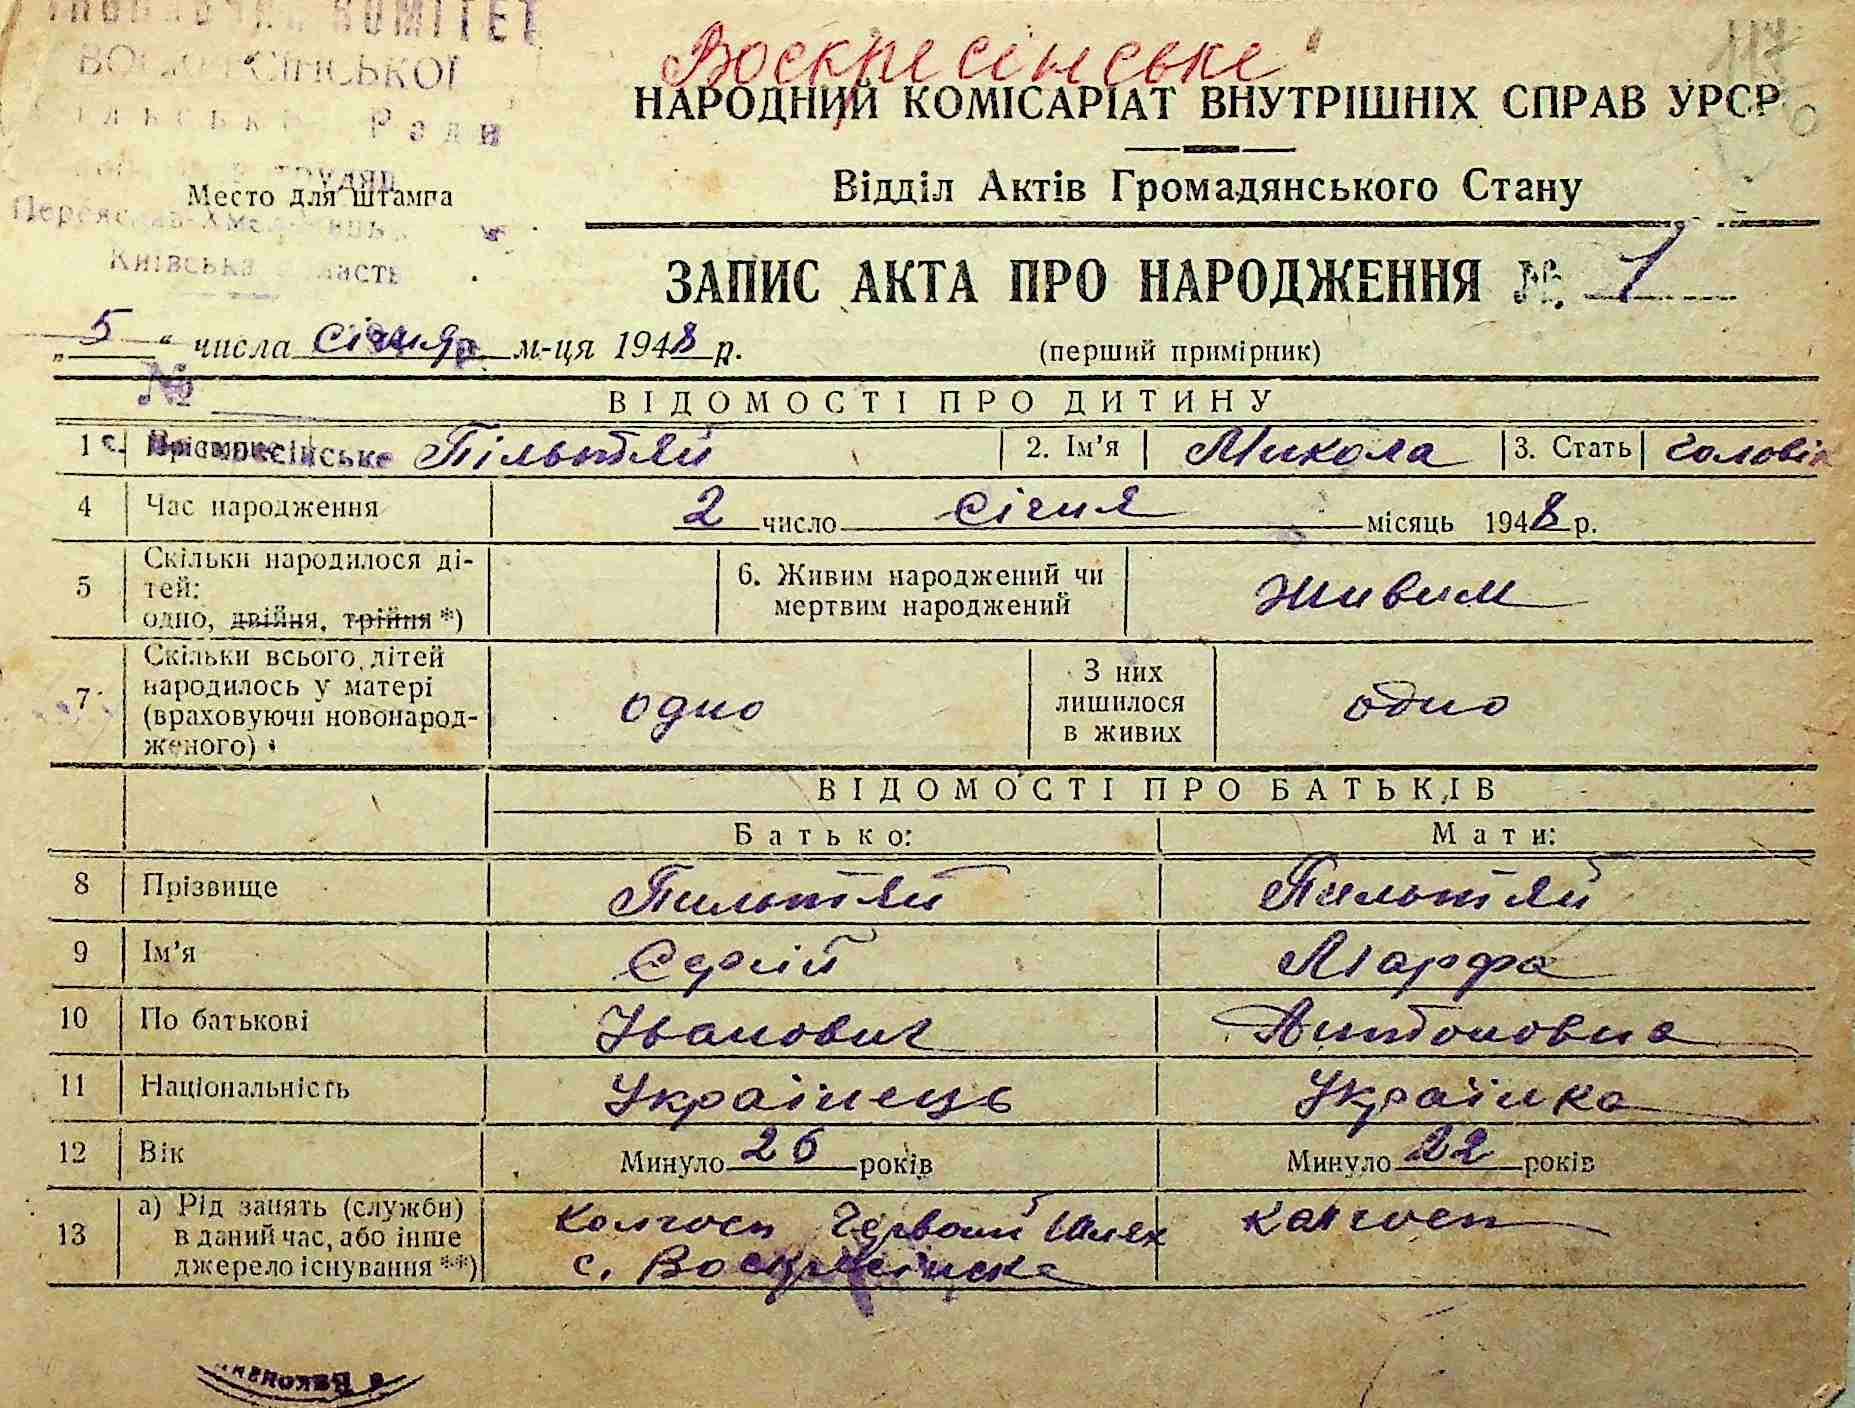 КОМІТЕТ
Воскресінське
117
НАРОДНИЙ КОМІСАРІАТ ВНУТРІШНІХ СПРАВ УРСР
Відділ Актів Громадянського Стану
Место для штампа
Київська область
ЗАПИС АКТА ПРО НАРОДЖЕННЯ №. 1
„5“ числа січня м-ця 1948 р.
(перший примірник)
№
ВІДОМОСТІ ПРО ДИТИНУ
1 Пільтяй 2. Ім'я Микола 3. Стать
4 Час народження 2 число січня місяць 1948 р.
5 Скільки народилося ді-
тей:
одно, двійня, трійня *)
6. Живим народжений чи
мертвим народжений
живим
7 Скільки всього дітей
народилось у матері
(враховуючи новонарод-
женого)
одно
З них
лишилося
в живих
одно
ВІДОМОСТІ ПРО БАТЬКІВ
Батько: Мати:
8 Прізвище Пильтяй Пильтяй
9 Ім'я Сергій Марфа
10 По батькові Іванович Антоновна
11 Національність Українець Українка
12 Вік Минуло 26 років Минуло 22 років
13 а) Рід занять (служби)
в даний час, або інше
джерело існування **)
Колгосп Червоний Шлях
с. Воскресінська
колгосп